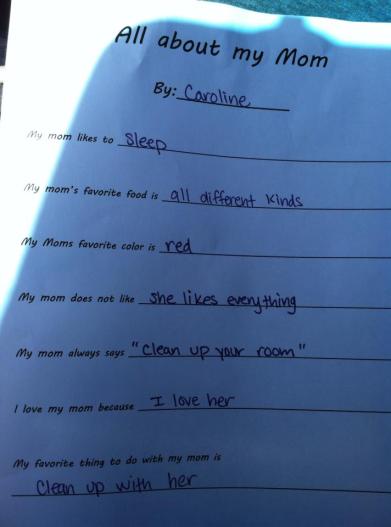 All about my Mom
By: Caroline
My mom likes to sleep
My mom's favorite food is all different kinds
My Moms favorite color is red
My mom does not like she likes everything
My mom always says "clean up your room"
I love my mom because I love her
My favorite thing to do with my mom is
Clean up with her